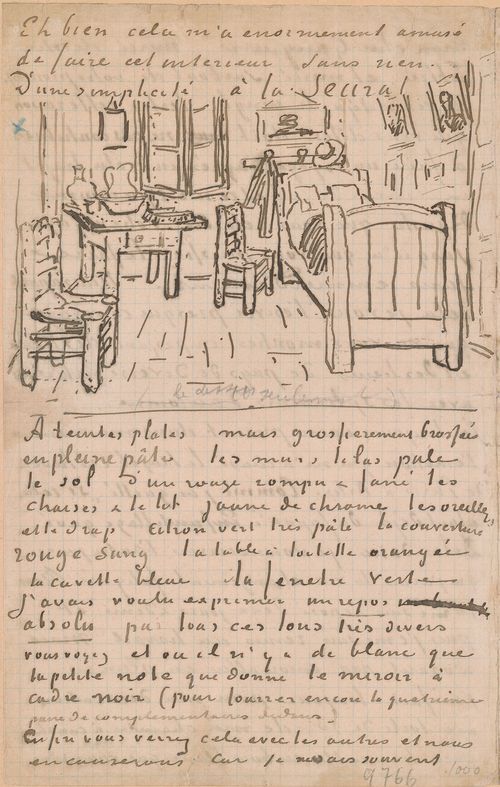 Eh bien cela m'a enormement amusé
de faire cet interieur sans rien.
D'une simplicité à la Seurat
le dessin seulement
A teintes plates mais grossierement brossées
en pleine pâte les murs lilas pale
le sol d'un rouge rompu & fané les
chaises & le lit jaune de chrome les oreillers
et le drap citron vert très pâle la couverture
rouge sang la table à toilette orangée
la cuvette bleue la fenetre verte
J'avais voulu exprimer un repos
absolu par tous ces tons très divers
vous voyez et ou il n'y a de blanc que
la petite note que donne le miroir à
cadre noir (pour fourrer encore la quatrieme
paire de complementaires dedans.
Enfin vous verrez cela avec les autres et nous
en causerons. Car je ne sais souvent
9766 1000